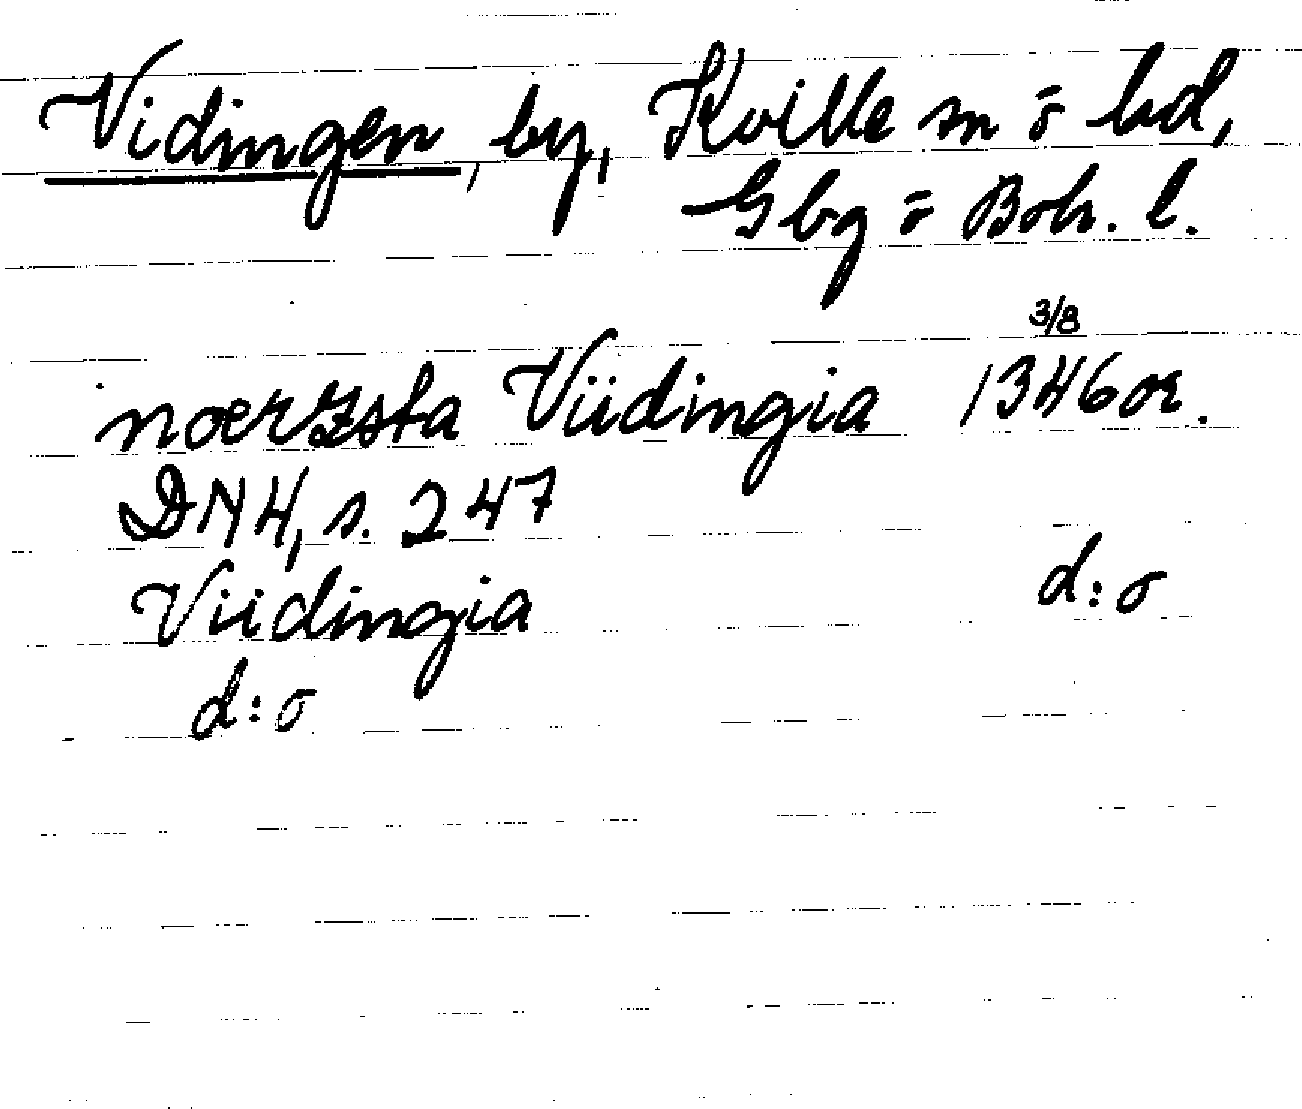 Vidingen, by, Kville sn o hd,
Gbg o Boh. l.
3/8
noerzsta Viidingia 1346 or.
DN 4, s. 247
Viidingia d:o
d:o